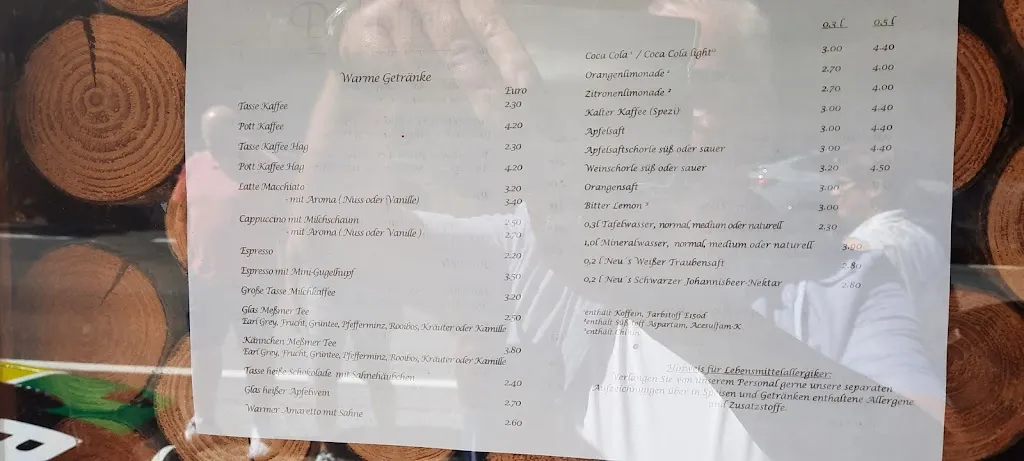 Warme Getränke
Euro
Tasse Kaffee 2.30
Pott Kaffee 4.20
Tasse Kaffee Hag 2.30
Pott Kaffee Hag 4.20
Latte Macchiato 3.20
- mit Aroma ( Nuss oder Vanille) 3.40
Cappuccino mit Milchschaum 2.50
- mit Aroma ( Nuss oder Vanille ) 2.70
Espresso 2.20
Espresso mit Mini-Gugelhupf 3.50
Große Tasse Milchkaffee 3.20
Glas Meßmer Tee 2.50
Earl Grey, Frucht, Grüntee, Pfefferminz, Rooibos, Kräuter oder Kamille
Kännchen Meßmer Tee 3.80
Earl Grey, Frucht, Grüntee, Pfefferminz, Rooibos, Kräuter oder Kamille
Tasse heiße Schokolade mit Sahnehäubchen 2.40
Glas heißer Apfelwein 2.70
Warmer Amaretto mit Sahne 2.60
0,3 l 0,5 l
Coca Cola¹ / Coca Cola light 3.00 4.40
Orangenlimonade ² 2.70 4.00
Zitronenlimonade ² 2.70 4.00
Kalter Kaffee (Spezi) 3.00 4.40
Apfelsaft 3.00 4.40
Apfelsaftschorle süß oder sauer 3.00 4.40
Weinschorle süß oder sauer 3.20 4.50
Orangensaft 3.00
Bitter Lemon ³ 3.00
0,3l Tafelwasser, normal, medium oder naturell 2.30
1,0l Mineralwasser, normal, medium oder naturell 3.90
0,2 l Neu´s Weißer Traubensaft 2.80
0,2 l Neu´s Schwarzer Johannisbeer-Nektar 2.80
¹enthält Koffein, Farbstoff E150d
²enthält Süßstoff Aspartam, Acesulfam-K
³enthält Chinin
Hinweis für Lebensmittelallergiker:
Verlangen Sie von unserem Personal gerne unsere separaten
Aufzeichnungen über in Speisen und Getränken enthaltene Allergene
und Zusatzstoffe.